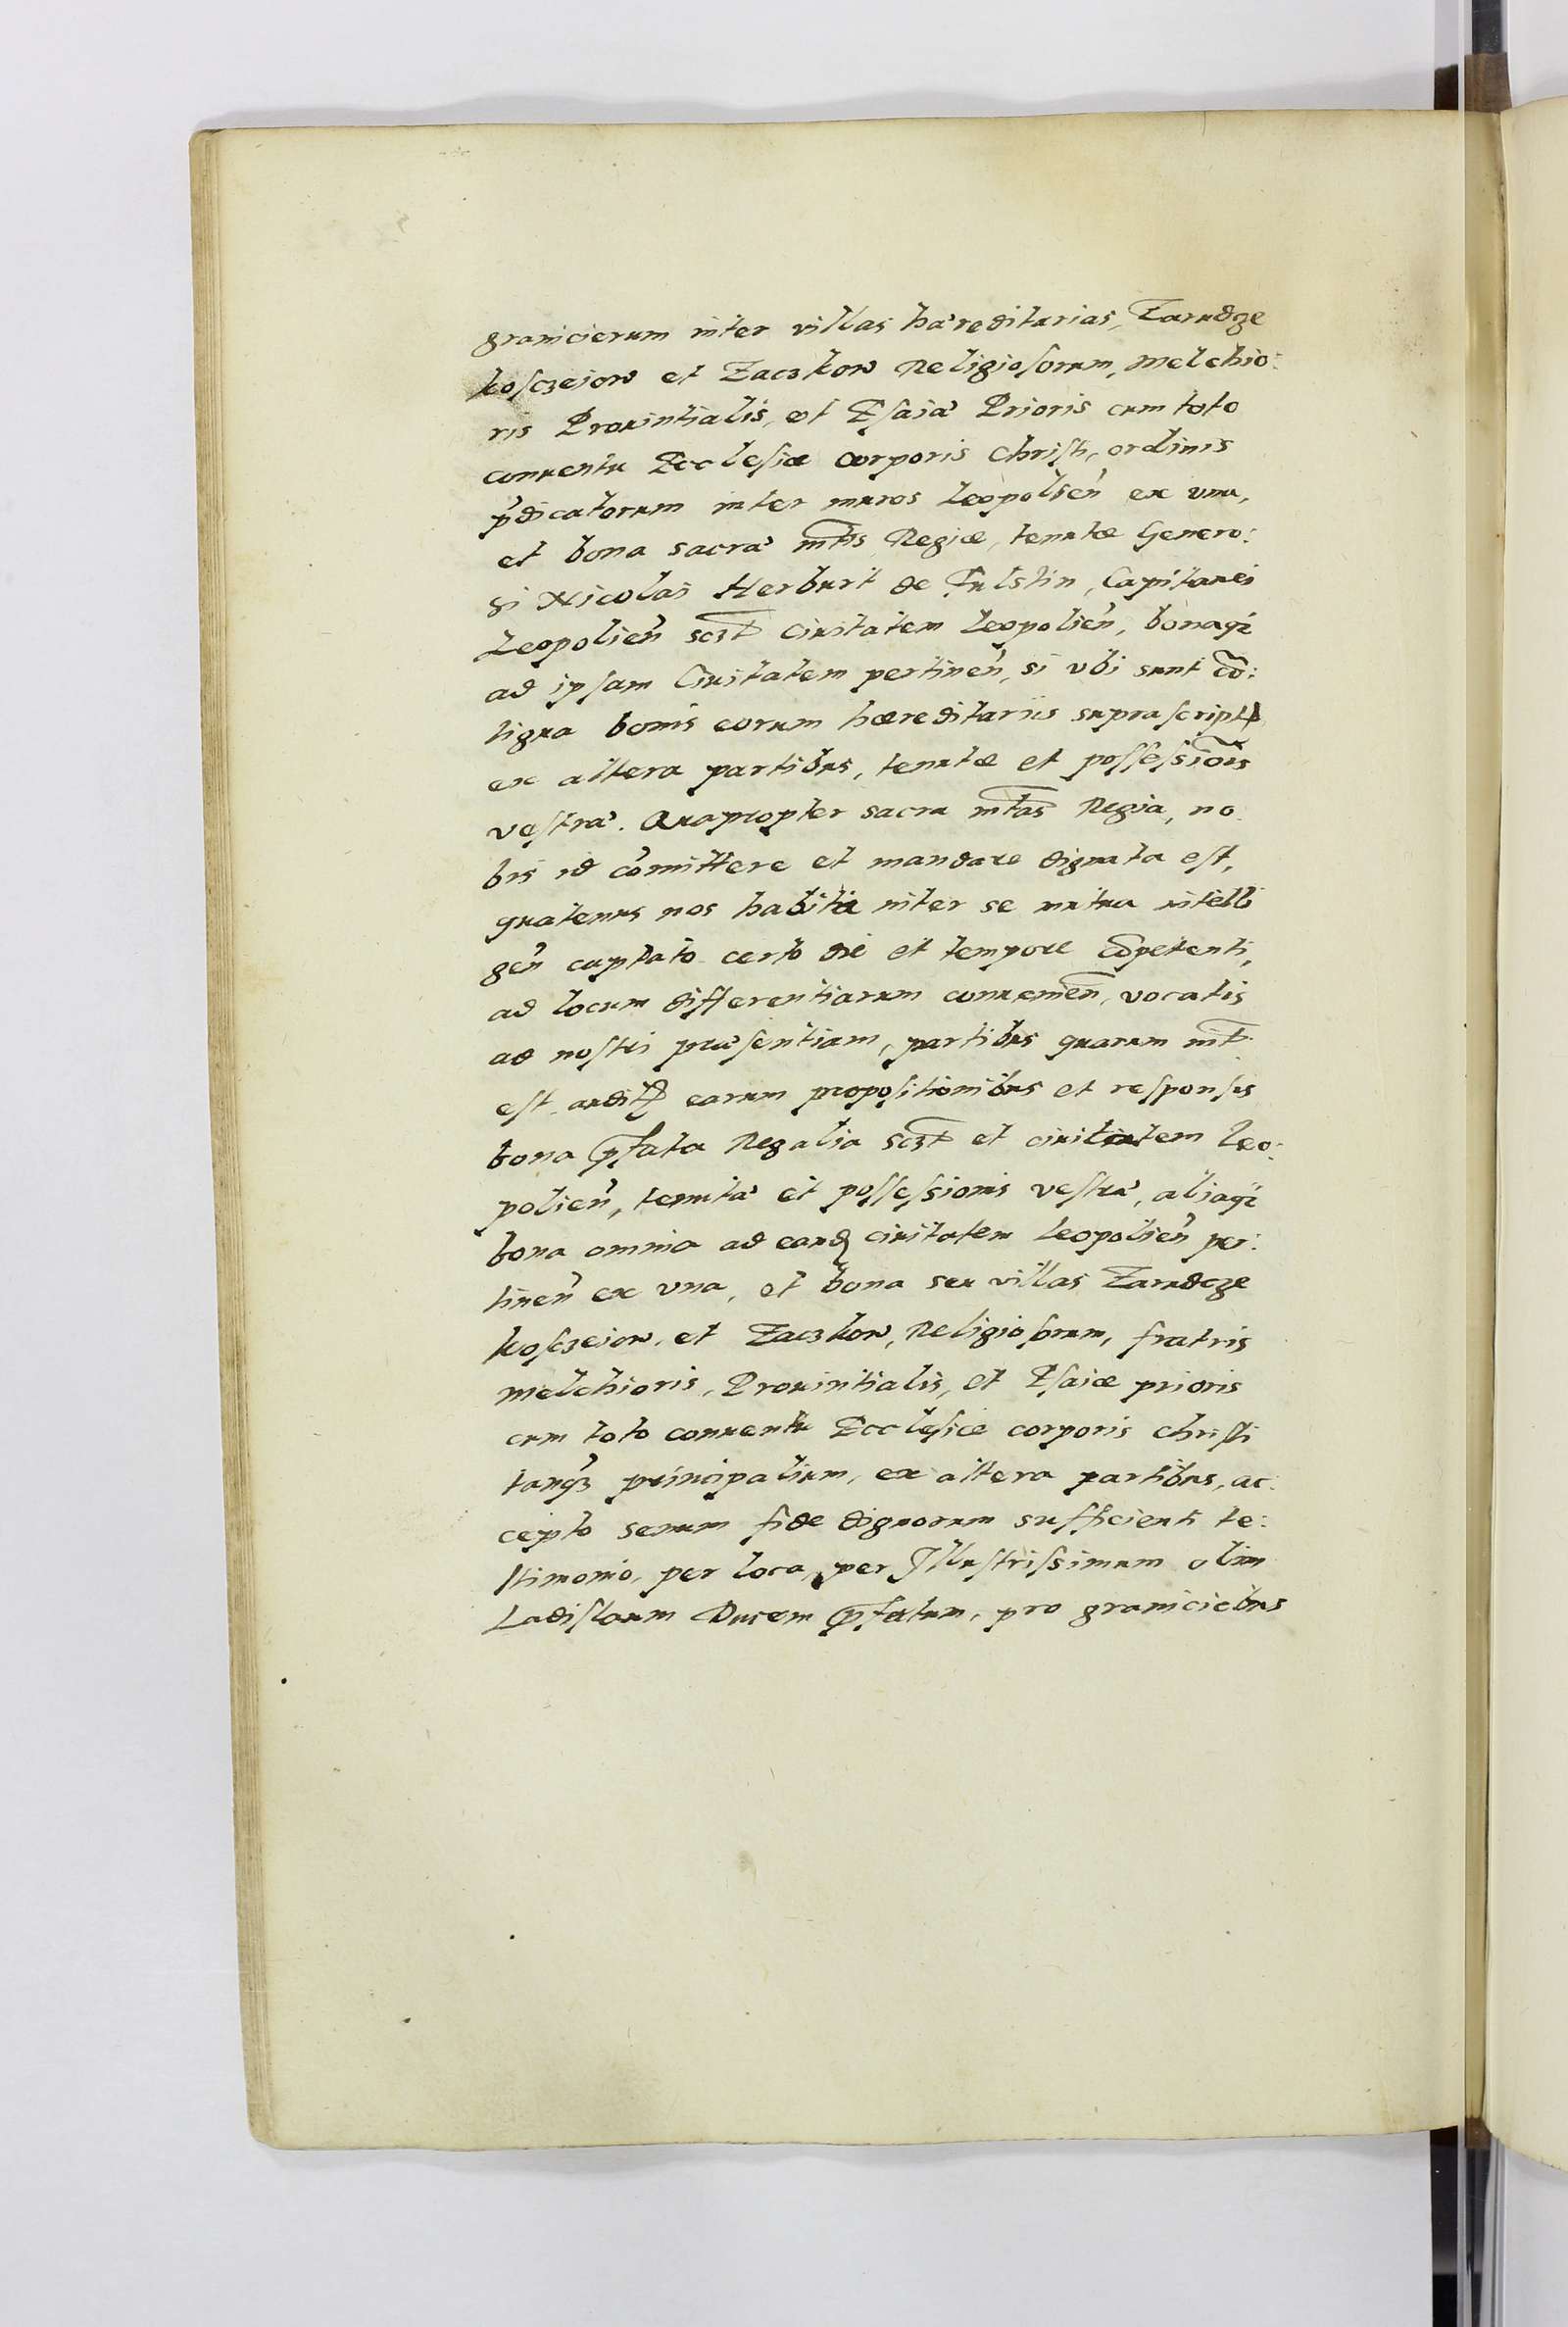 granicierum inter villas hæreditarias, Zarudcze
koſczeiow et Zaczkow Religioſorum, Melchio:
ris Prouintialis, et Eſaiæ Prioris cum toto
conuentu Eccleſiæ corporis Chriſti, ordinis
p̄dicatorum inter muros leopolien̄ ex vna,
et bona sacræ mtis Regiæ, tenutæ Genero:
si Nicolai Herburt de Fulstin, Capitanei
Leopolien̄ sczt ciuitatem leopolien̄, bonaq̃
ad ipſam Ciuitatem pertinen̄, si vbi sunt cō:
tigua bonis eorum hæreditariis supraſcript̄
ex altera partibus, tenutæ et poſſeſsiōis
veſtræ. Quapropter sacra mtas Regia, no
bis id cōmittere et mandare dignata eſt,
quatenus nos habita inter se mutua intelli
gen̄ captato certo die et tempore cōpetenti,
ad locum differentiarum conuenien̄, vocatis
ad noſtri præſentiam, partibus quarum int̄
eſt audit̄ earum propoſitionibus et reſponſis
bona p̄fata Regalia sczt et ciuitatem Leo:
polien̄, tenutæ et poſſeſsionis veſtræ, aliaq̃
bona omnia ad eand ciuitatem leopolien̄ per:
tinen̄ ex vna, et bona seu villas Zarudcze
koſczeiow, et Zaczkow, Religioſorum, fratris
Melchioris, Prouintialis, et Eſaiæ prioris
cum toto conuentu Eccleſiæ corporis chriſti
tanq̃ principalium, ex altera partibus, ac:
cepto senum fide dignorum sufficienti te:
ſtimonio, per loca, per Illuſtriſsimum olim
Ladiſlaum Ducem p̄fatum, pro graniciebus